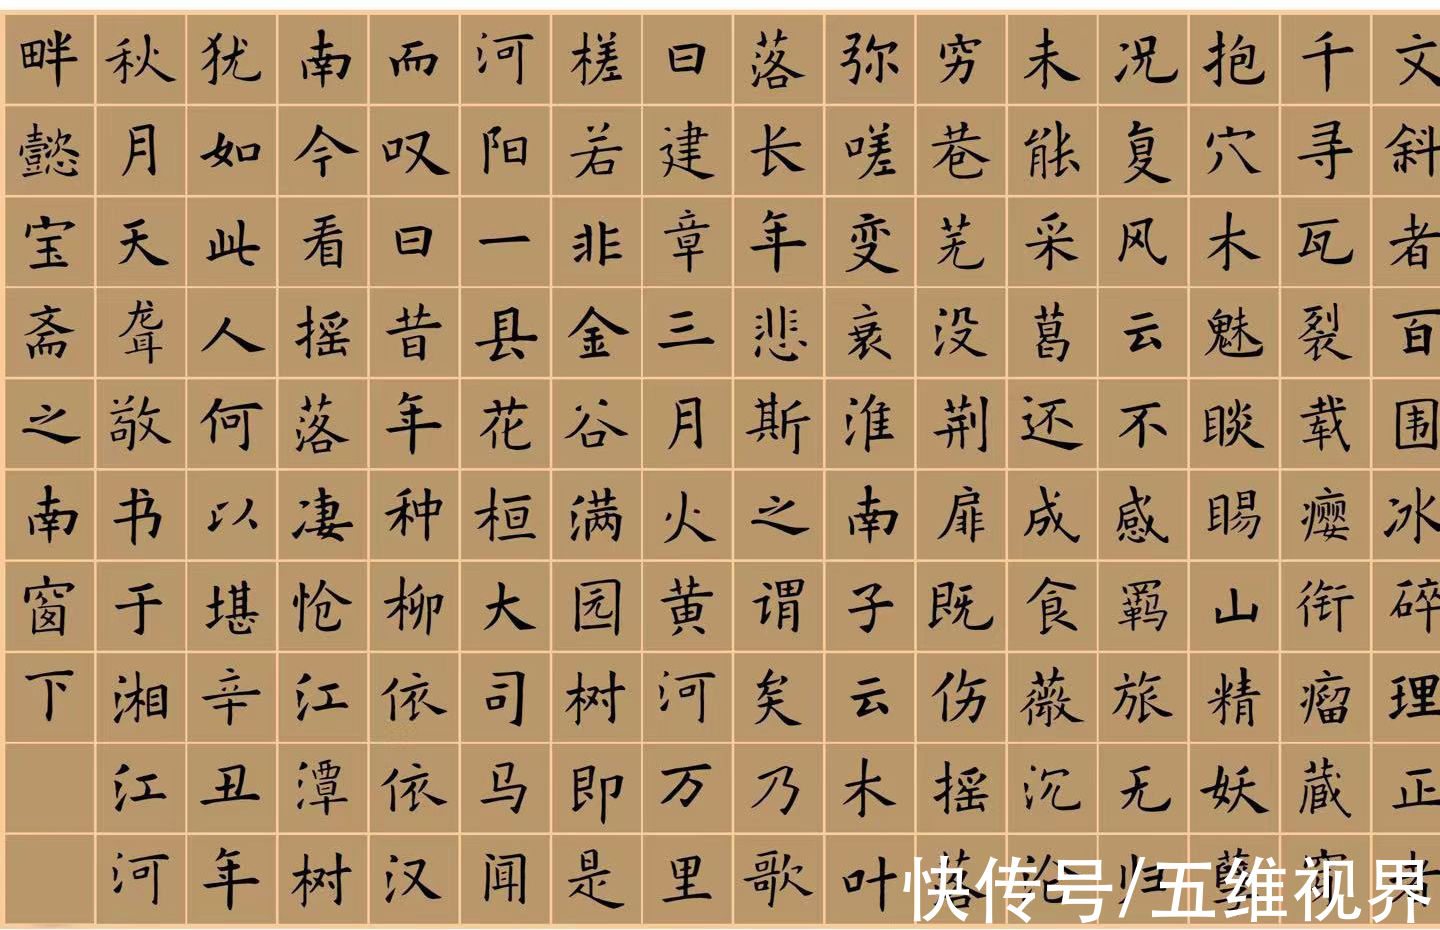 文斜者百围冰碎理正者
千寻瓦裂载瘿衔瘤藏穿
抱穴木魅睒睗山精妖孽
况复风云不感羁旅无归
未能采葛还成食薇沉沦
穷巷芜没荆扉既伤摇落
弥嗟变衰淮南子云木叶
落长年悲斯之谓矣乃歌
曰建章三月火黄河万里
槎若非金谷满园树即是
河阳一县花桓大司马闻
而叹曰昔年种柳依依汉
南今看摇落凄怆江潭树
犹如此人何以堪辛丑年
秋月天聋敬书于湘江河
畔懿宝斋之南窗下
快传号/五维视界